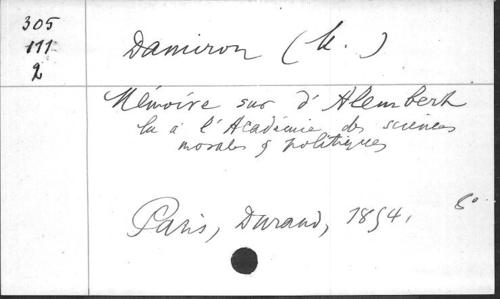 305
111
2
Damiron (M.)
Mémoire sur d'Alembert
lu à l'Académie des sciences
morales & politiques
Paris, Durand, 1854. 8°